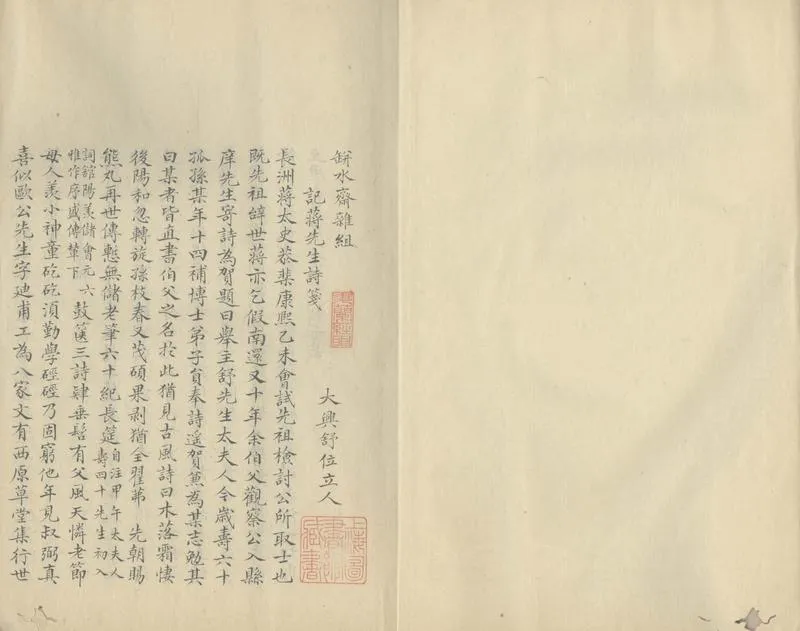 缾水齋雜組
大興舒位立人
記蔣先生詩箋
長洲蔣太史恭棐康熙乙未會試先祖檢討公所取士也
既先祖辭世蔣亦乞假南還又十年余伯父觀察公入縣
庠先生寄詩為賀題曰舉主舒先生太夫人令歲壽六十
孤孫某年十四補博士弟子員奉詩遥賀蔥為某志勉其
曰某者皆直書伯父之名於此猶見古風詩曰木落霜悽
後陽和忽轉旋孫枝春又茂碩果剥猶全翟茀先朝賜
熊丸再世傳慙無儲老筆六十紀長筵自注甲午太夫人
壽四十先生初入
詞館陽羨儲會元六
雅作序盛傳輦下鼓篋三詩肄垂髫有父風天憐老節
母人羡小神童矻矻湏勤學硜硜乃固窮他年見叔弼真
喜似歐公先生字廸甫工為八家文有西原草堂集行世